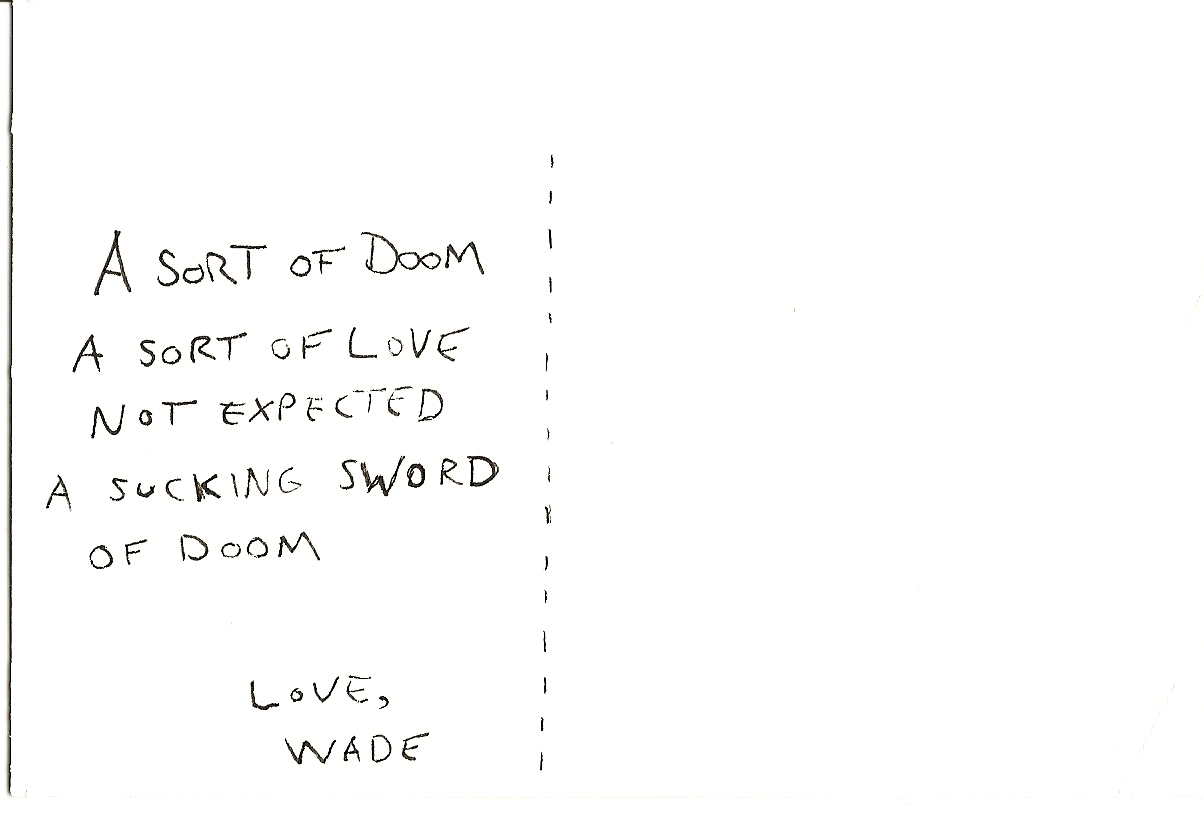 A SORT OF DOOM
A SORT OF LOVE
NOT EXPECTED
A SUCKING SWORD
OF DOOM
LOVE,
WADE